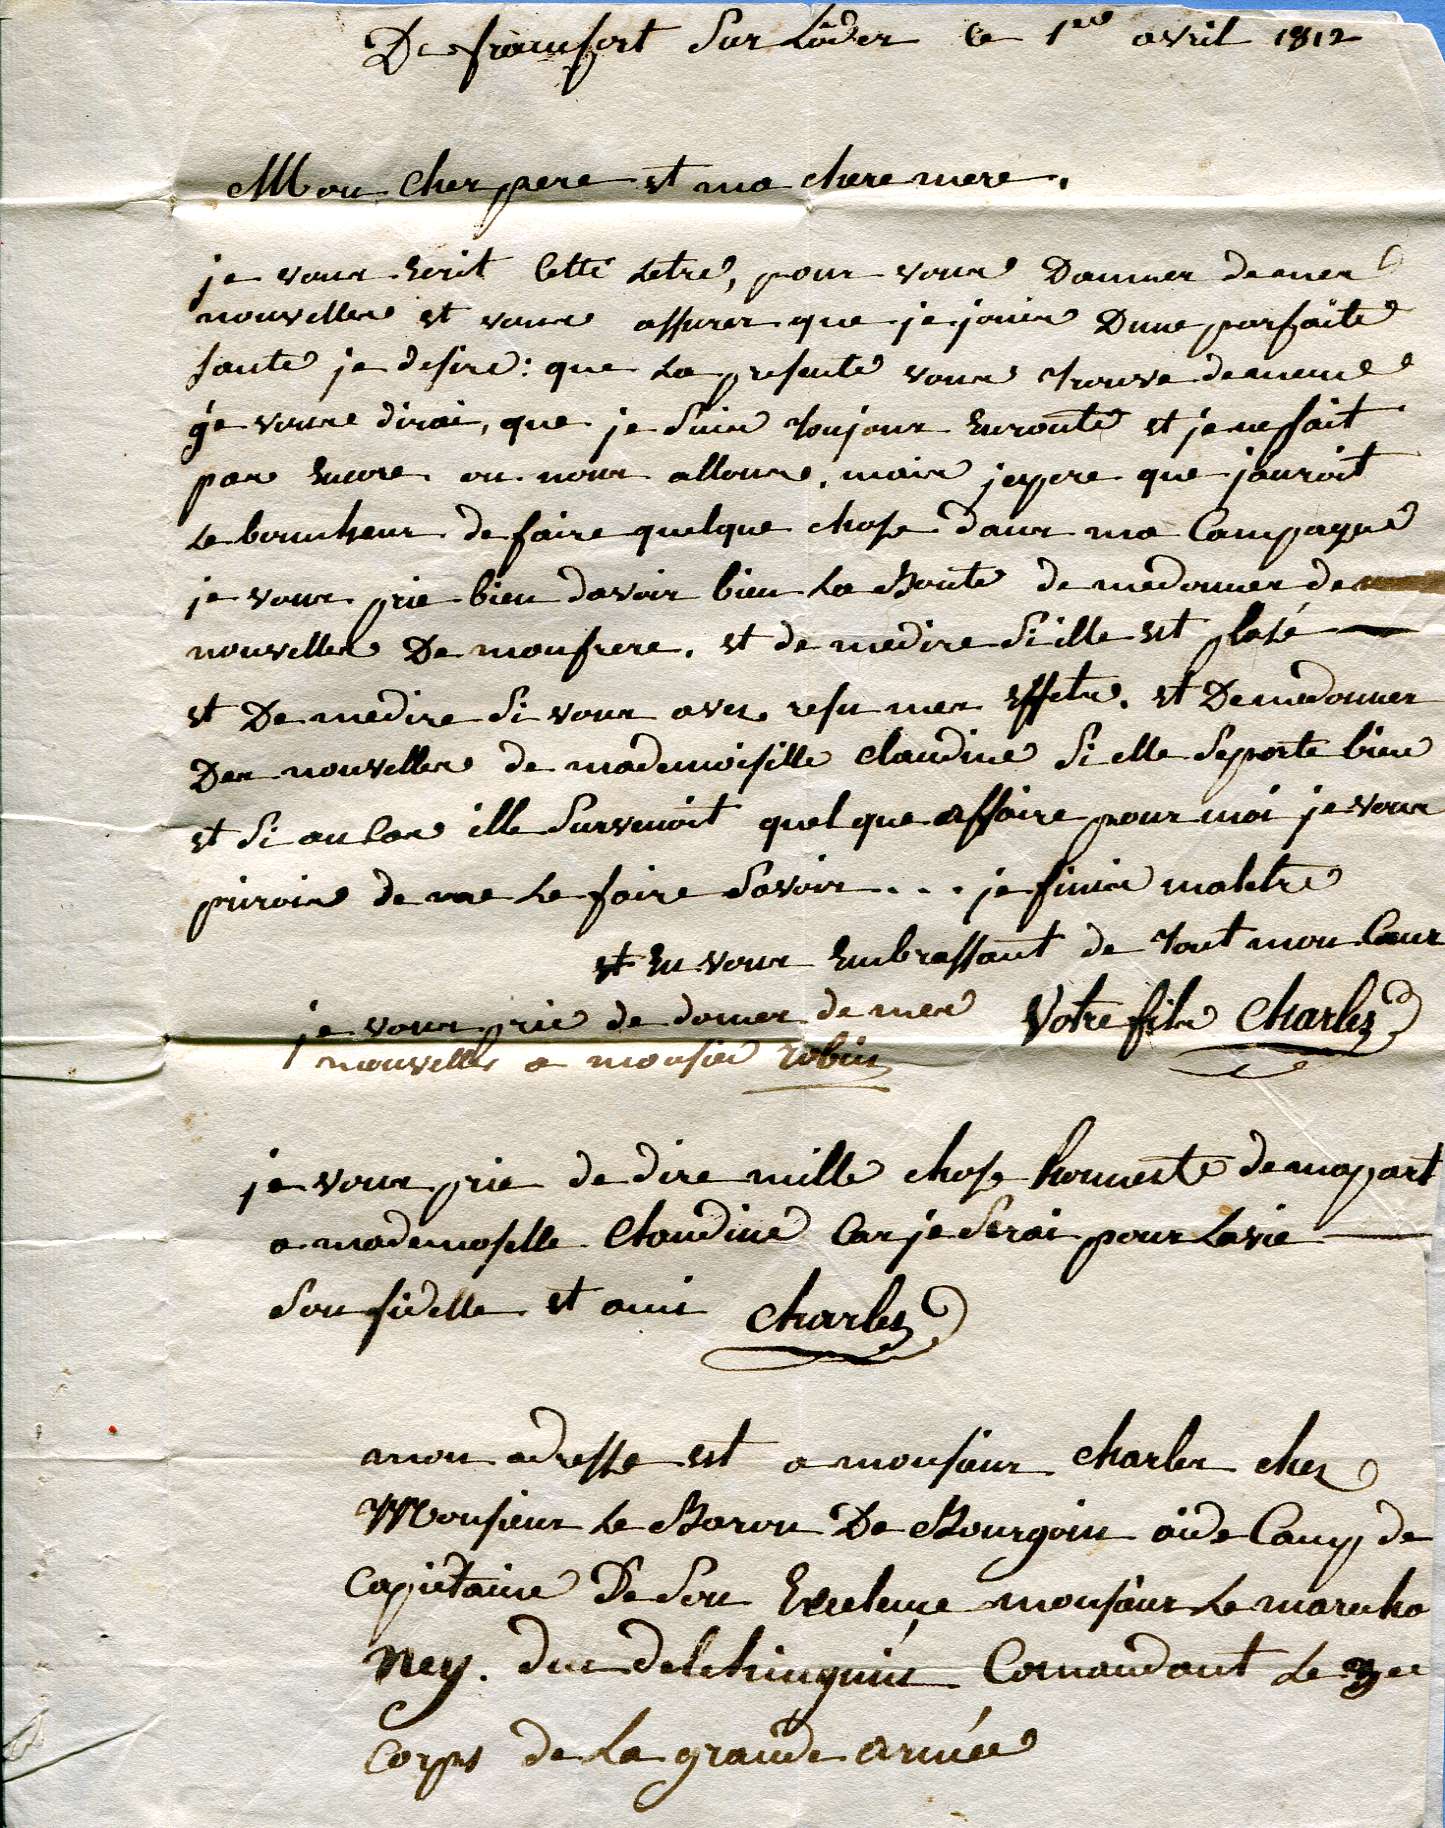 De francfort Sur Lôder le 1er avril 1812
Mon Cher pere et ma chere mere,
je vous Ecrit Cette Letre, pour vous Donner de mes
nouvelles et vous assurer que je jouis Dune parfaite
Santé je desire: que La presente vous trouve de meme
ge vous dirai, que je Suis toujour Enroute et je ne sait
pas Encore ou nous allons, mais jespere que jauroit
Le bonnheur de faire quelque chose dans ma Campagne
je vous prie bien davoir bien La Bonte de me donner de
nouvelles De mon frere, et de me dire Si ille est plasé
et De me dire Si vous aves resu mes effets, et De me donner
Des nouvelles de mademoiselle Claudine Si elle Se porte bien
et Si au Cas ille Survenoit quelque affaire pour moi je vous
prirois de me Le faire Savoir . . . je finis ma letre
et En vous Embrassant de tout mon Cœur
je vous prie de doner de mes Votre fils Charles
nouvelles a monsieu robin
je vous prie de dire mille chose honneste de ma part
a mademoselle Claudine Car je Serai pour La vie
Son fidelle et ami Charles
mon adresse est a monsieur Charles ches
Monsieur Le Baron De Bourgoin aide Camp de
Capitaine De Son Excelence monsieur Le marecha
Ney. duc delchinguin Comandant Le 3ee
Corps de La grande armée